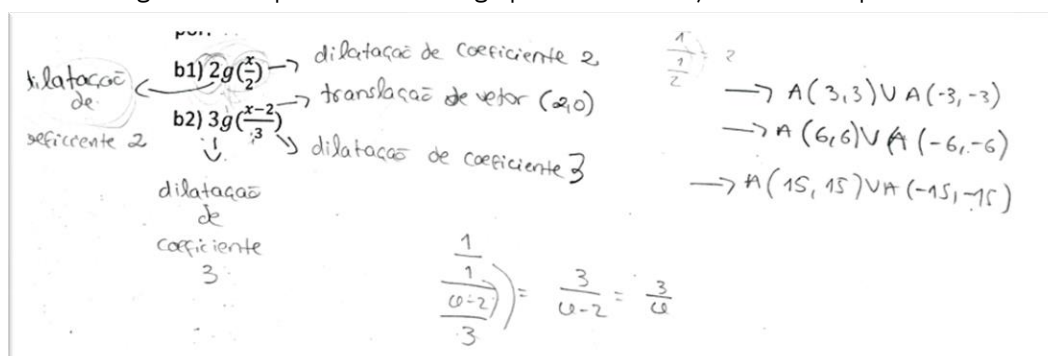 b1) 2g(x/2) → dilatação de coeficiente 2
dilatação
de
coeficiente 2
b2) 3g((x-2)/3) → translação de vetor (2,0)
dilatação de coeficiente 3
dilatação
de
coeficiente
3
1/(1/2) = 2
→ A(3,3) ∪ A(-3,-3)
→ A(6,6) ∪ A(-6,-6)
→ A(15,15) ∪ A(-15,-15)